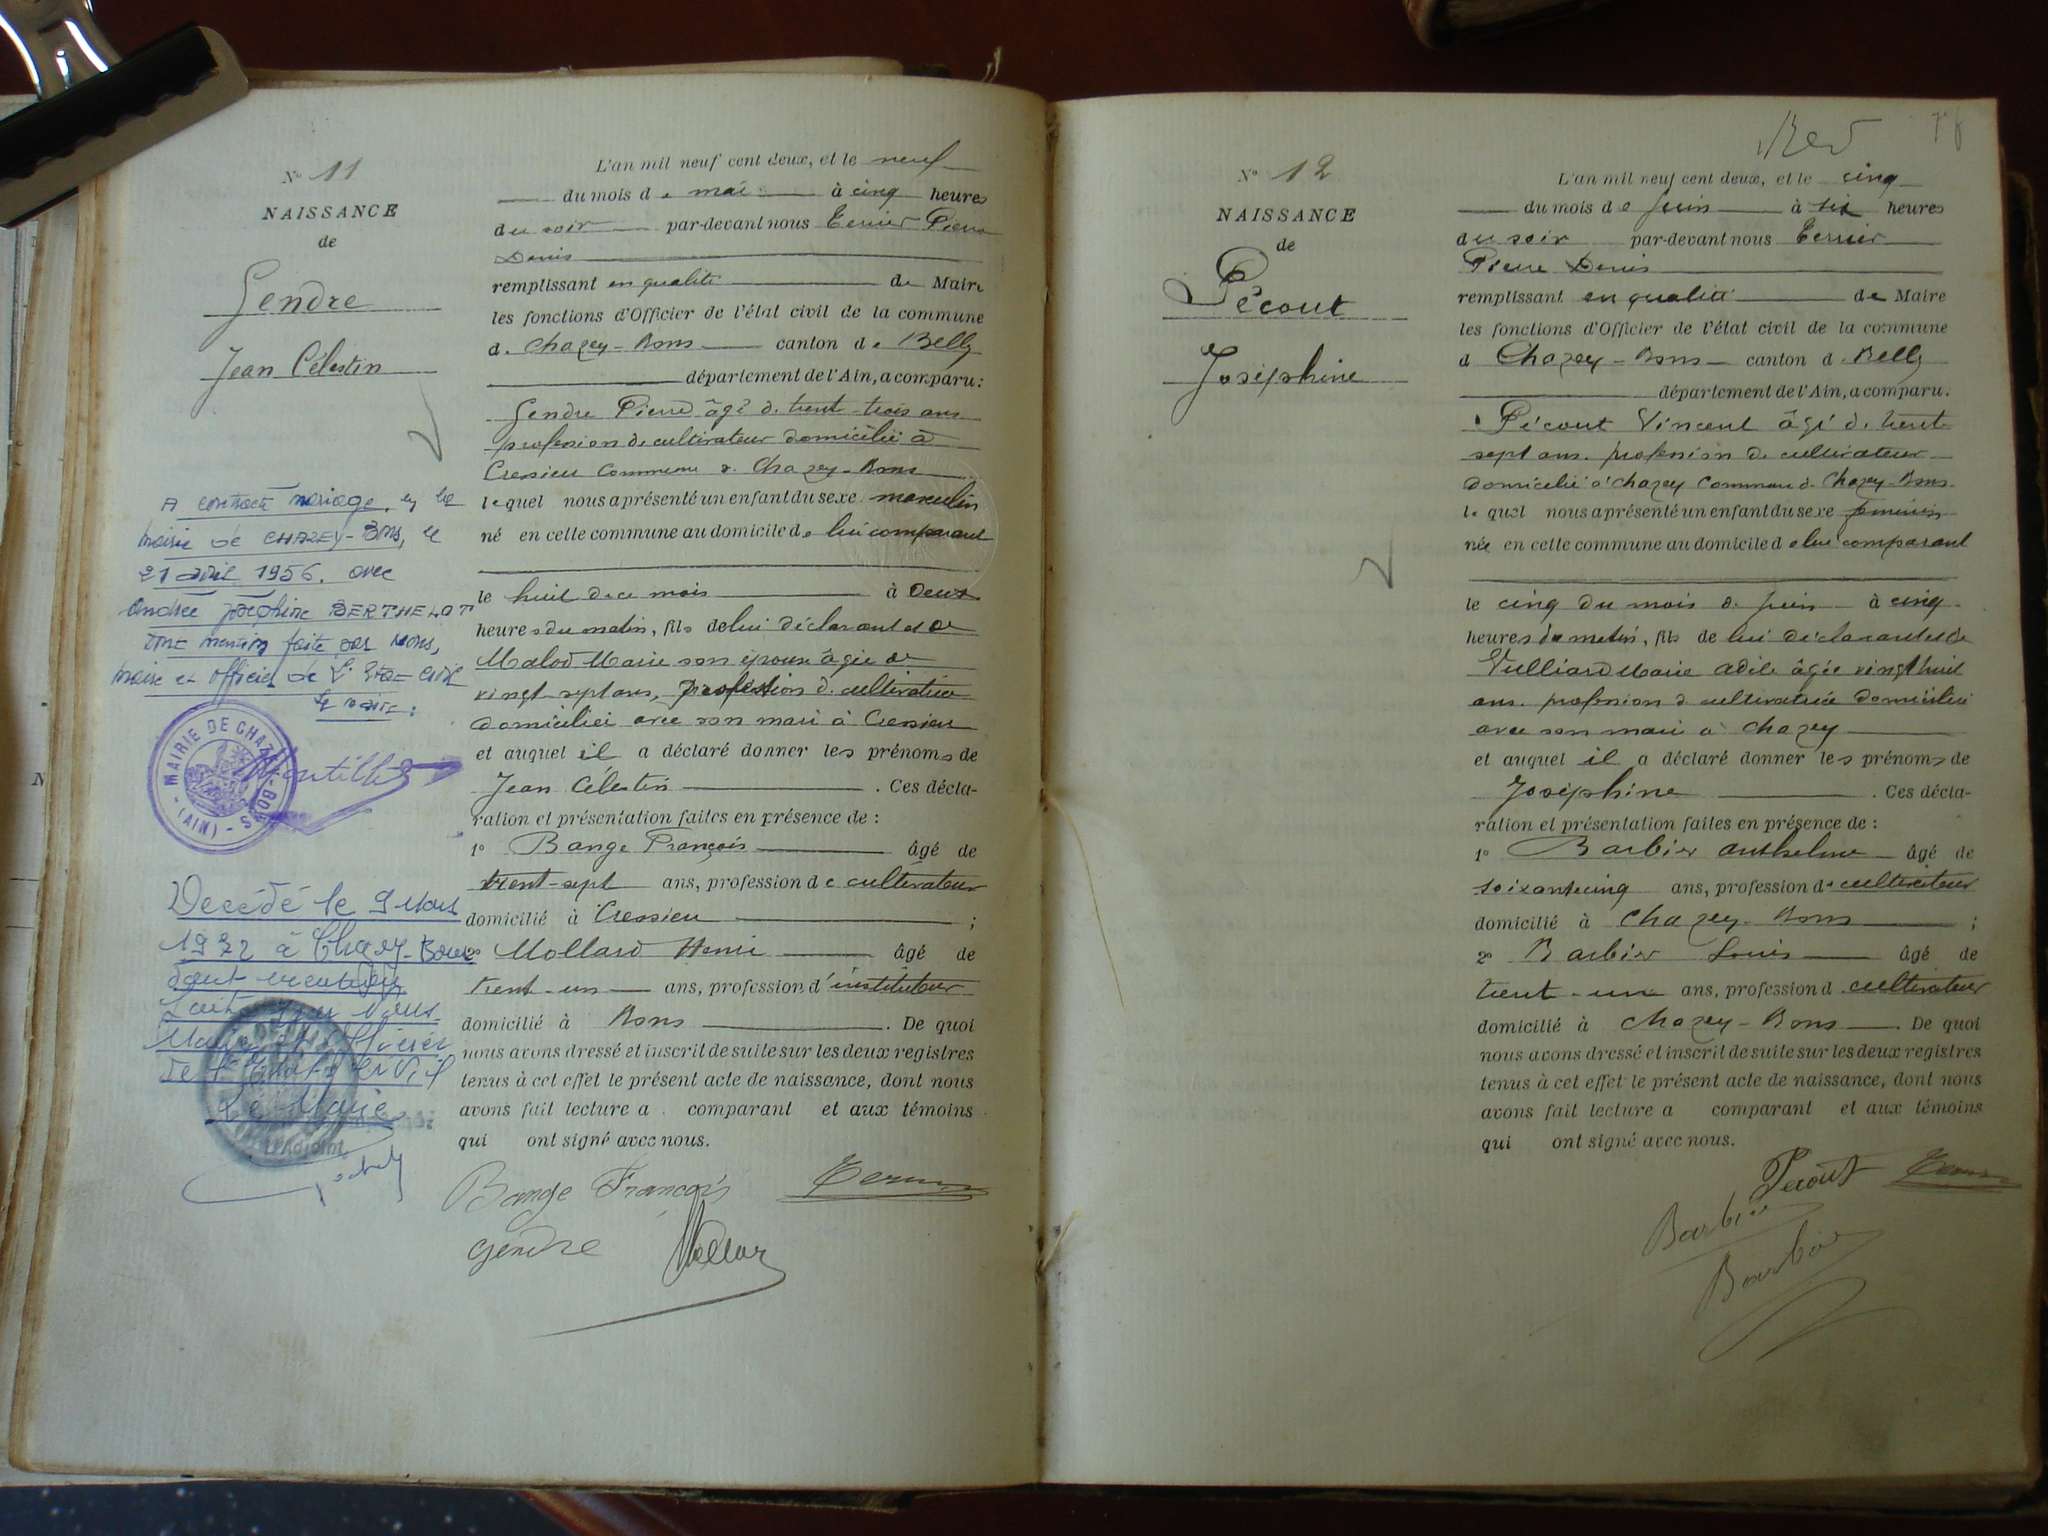 N° 11
NAISSANCE
de
Gendre
Jean Célestin
A contracté mariage, en la
mairie de CHAZEY-BONS, le
21 avril 1956, avec
Andrée Joséphine BERTHELOT
mention faite par Nous,
maire et officier de l'Etat Civil
Le maire:
MAIRIE DE CHAZEY-BONS
(AIN)
Décédé le 9 Mars
à Chazey-Bons
dont mention
faite par Nous
Maire et Officier
de l'Etat Civil
Le Maire
L'an mil neuf cent deux, et le neuf
du mois de mai à cinq heures
du soir par-devant nous Terrier Pierre
Denis
remplissant en qualité de Maire
les fonctions d'Officier de l'état civil de la commune
d. Chazey-Bons canton de Belley
département de l'Ain, a comparu:
Gendre Pierre âgé de trent-trois ans
profession de cultivateur domicilié à
Cressieu Commune d. Chazey-Bons
lequel nous a présenté un enfant du sexe masculin
né en cette commune au domicile de lui comparant
le huit de ce mois à Deux
heures du matin, fils de lui déclarant et de
Malod Marie son épouse âgée de
vingt-sept ans, profession d. cultivatrice
domiciliée avec son mari à Cressieu
et auquel il a déclaré donner les prénoms de
Jean Célestin. Ces décla-
ration et présentation faites en présence de :
1° Bange François âgé de
trent-sept ans, profession de cultivateur
domicilié à Cressieu ;
2° Mollard Henri âgé de
trent-un ans, profession d'instituteur
domicilié à Bons. De quoi
nous avons dressé et inscrit de suite sur les deux registres
tenus à cet effet le présent acte de naissance, dont nous
avons fait lecture a comparant et aux témoins
qui ont signé avec nous.
Bange François Terrier
Gendre Mollard
N° 12
NAISSANCE
de
Pécout
Joséphine
L'an mil neuf cent deux, et le cinq
du mois de Juin à six heures
du soir par-devant nous Terrier
Pierre Denis
remplissant en qualité de Maire
les fonctions d'Officier de l'état civil de la commune
d Chazey-Bons canton d. Belley
département de l'Ain, a comparu.
Pécout Vincent âgé de trent-
sept ans. profession de cultivateur
domicilié à Chazey Commune d. Chazey-Bons.
lequel nous a présenté un enfant du sexe féminin
née en cette commune au domicile de lui comparant
le cinq du mois de Juin à cinq
heures du matin, fils de lui déclarant et de
Vulliard Marie Adèle âgée vingt huit
ans. profession d cultivatrice domiciliée
avec son mari à Chazey
et auquel il a déclaré donner les prénoms de
Joséphine. Ces décla-
ration et présentation faites en présence de :
1° Barbier Anthelme âgé de
soixante cinq ans, profession de cultivateur
domicilié à Chazey-Bons ;
2° Barbier Louis âgé de
trent-un ans, profession d cultivateur
domicilié à Chazey-Bons. De quoi
nous avons dressé et inscrit de suite sur les deux registres
tenus à cet effet le présent acte de naissance, dont nous
avons fait lecture a comparant et aux témoins
qui ont signé avec nous.
Pecout Terrier
Barbier
Barbier